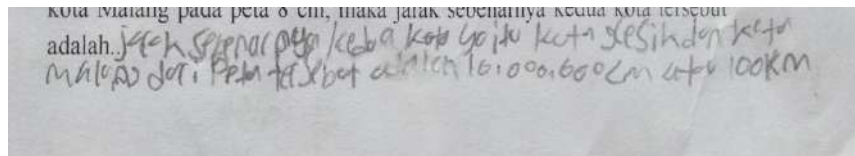 kota Malang pada peta 8 cm, maka jarak sebenarnya kedua kota tersebut
adalah.. jarak sebenarnya kedua kota yaitu kota dan kota
malang dari Peta tersebut adalah 10.000.000 cm atau 100 KM